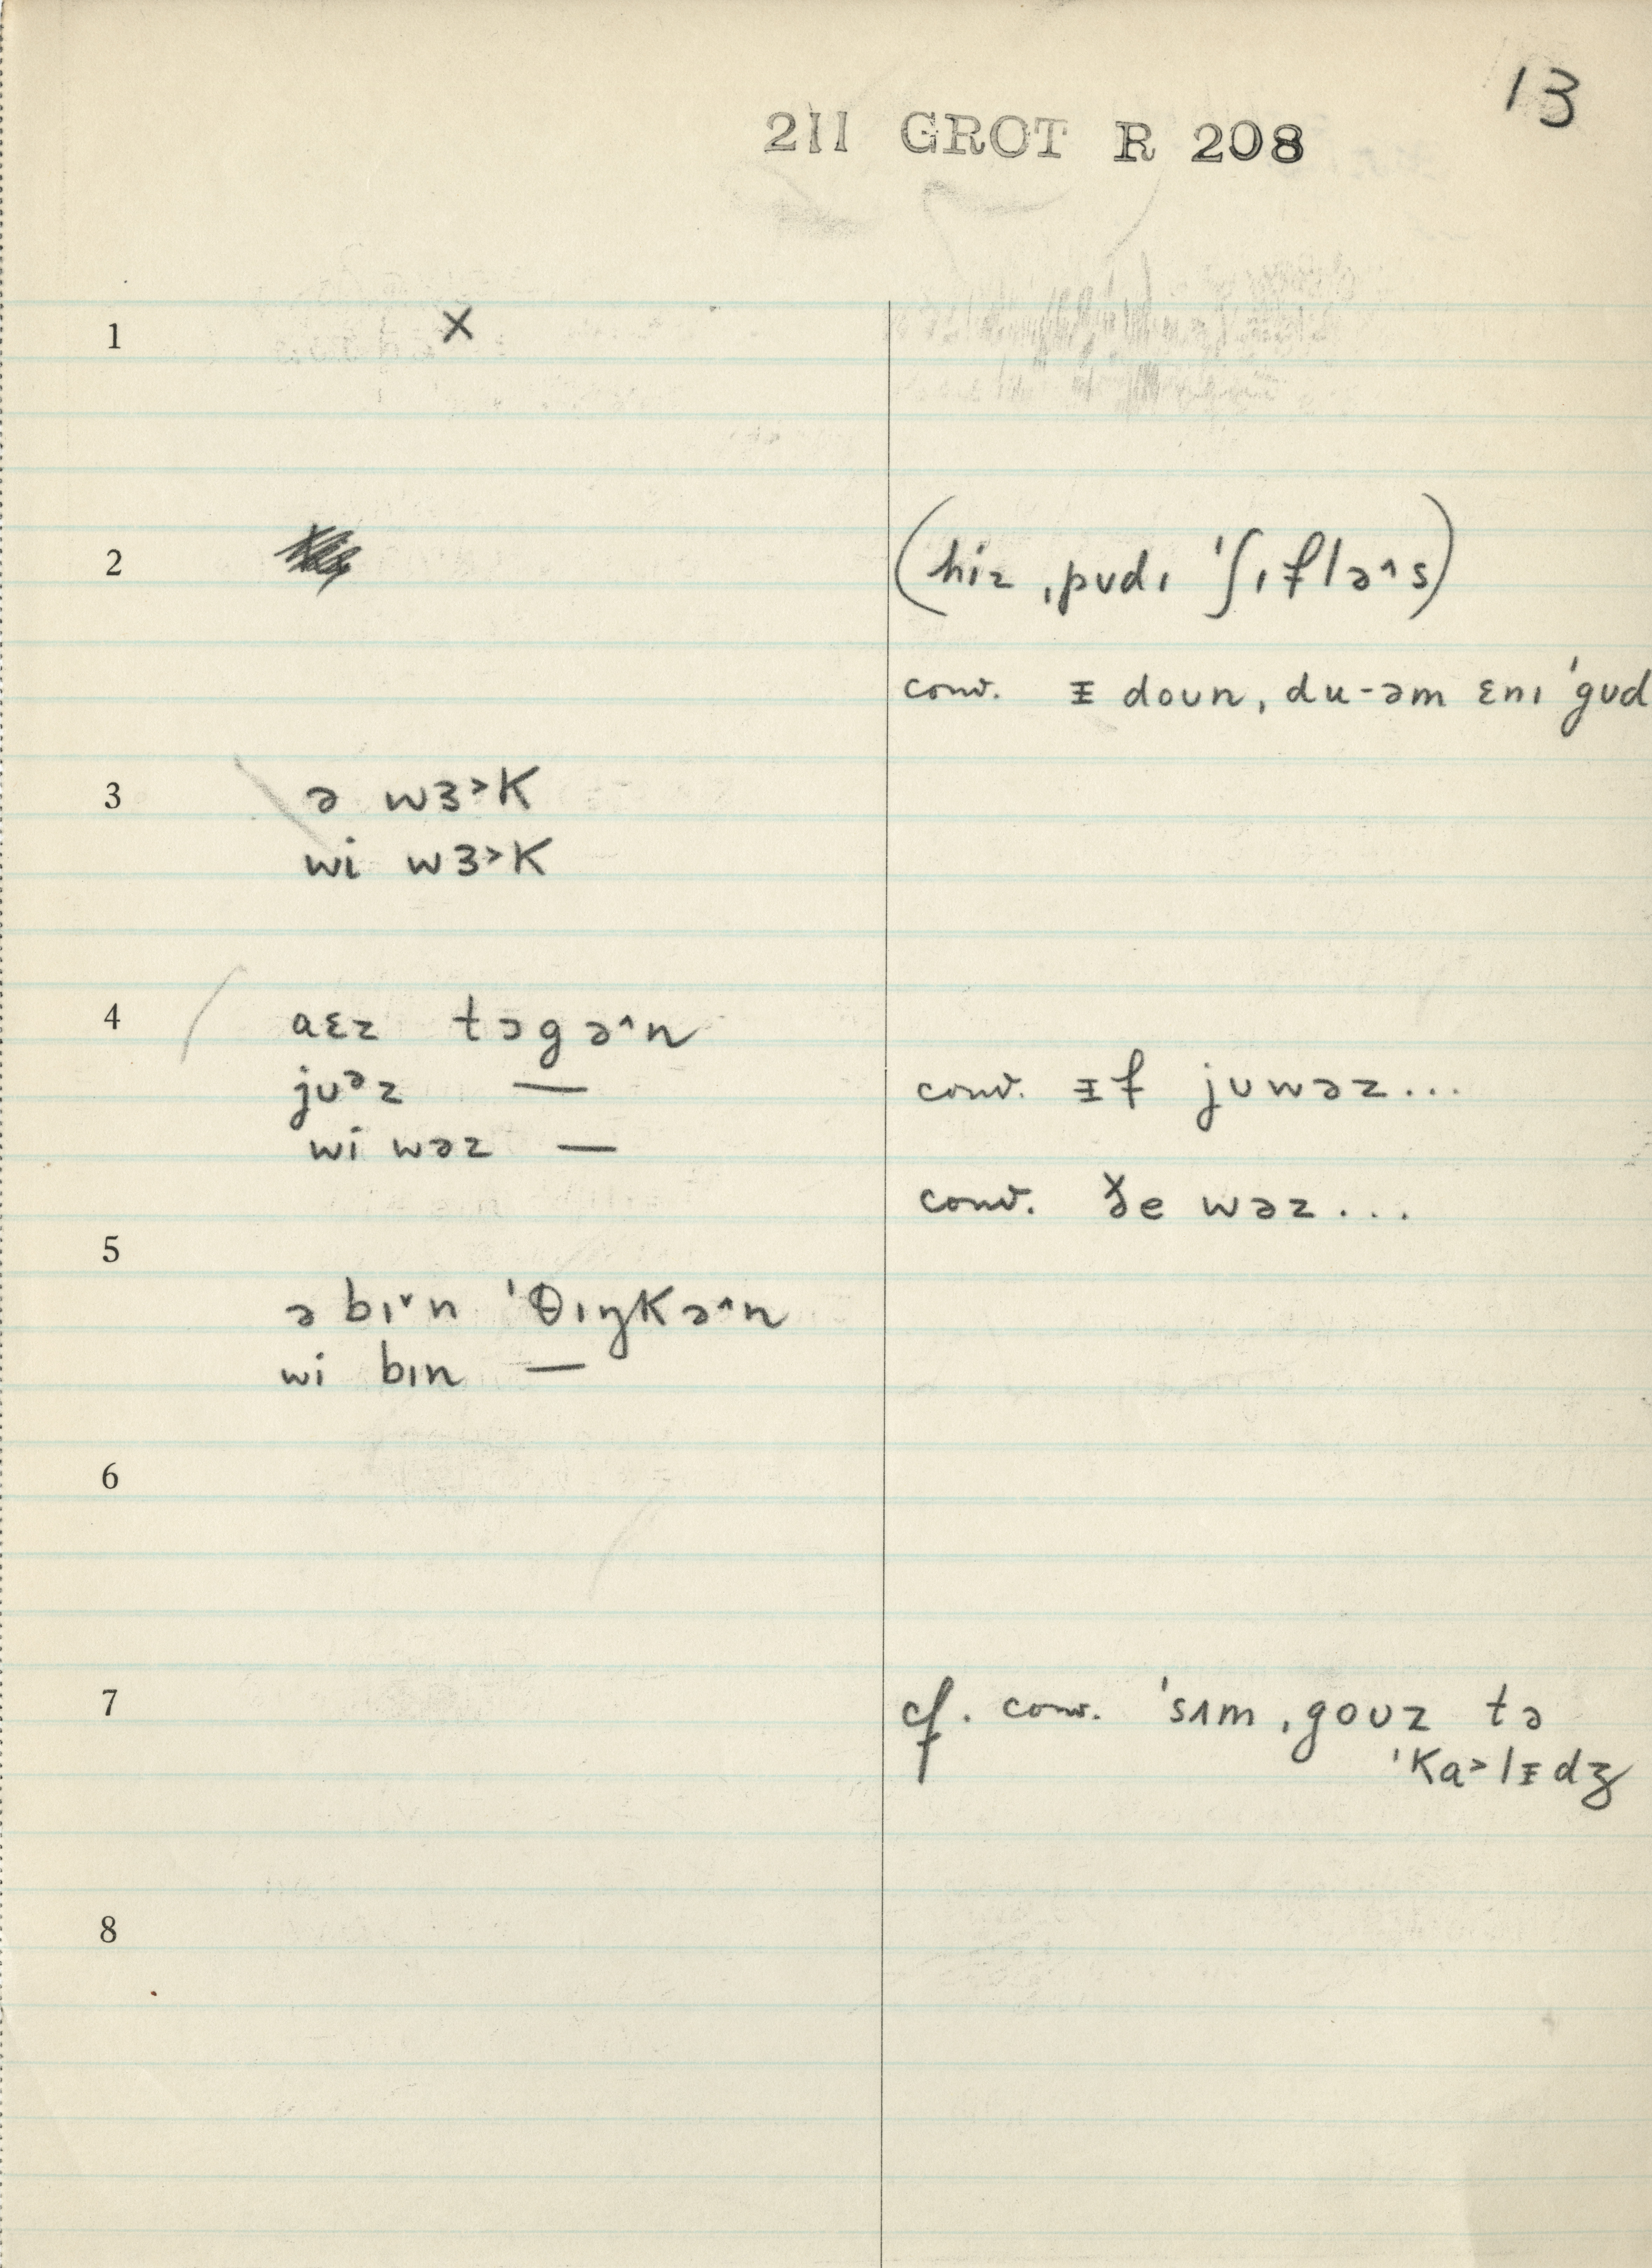 13
211 GROT R 208
1 ×
2 (hiz ˌpʊdɪ ˈʃɪflə˄s)
conv. ᵻ doʊn, du-əm ɛnɪ ˈgʊd
3 ə wɜ˃k
wi wɜ˃k
4 aɛz təgə˄n
jʊᵊz — conv. ᵻf jʊwəz...
wi wəz —
conv. ðe wəz...
5
ə bɪ˅n ˈθɪŋkə˄n
wi bɪn —
6
7 cf. conv. ˈsʌm ˌgoʊz tə
ˈka˃lᵻdʒ
8